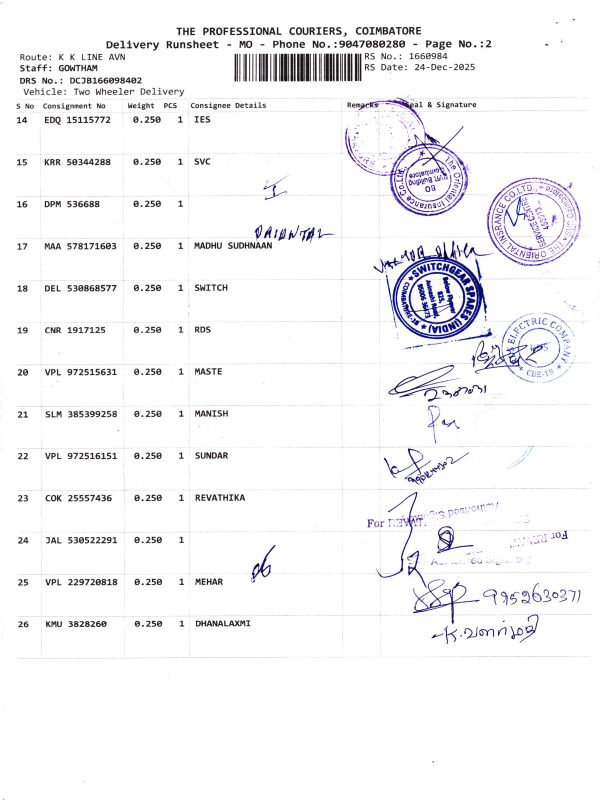 THE PROFESSIONAL COURIERS, COIMBATORE
Delivery Runsheet - MO - Phone No.:9047080280 - Page No.:2
Route: K K LINE AVN
RS No.: 1660984
Staff: GOWTHAM
RS Date: 24-Dec-2025
DRS No.: DCJB166098402
Vehicle: Two Wheeler Delivery
S No Consignment No Weight PCS Consignee Details Remarks Seal & Signature
14 EDQ 15115772 0.250 1 IES
15 KRR 50344288 0.250 1 SVC
The Oriental Insurance Co.Ltd.,
BO
Coimbatore
16 DPM 536688 0.250 1
ORIENTAL
17 MAA 578171603 0.250 1 MADHU SUDHNAAN
18 DEL 530868577 0.250 1 SWITCH
SWITCHGEAR SPARES (INDIA)
19 CNR 1917125 0.250 1 RDS
ELECTRIC COMPANY
CBE-18
20 VPL 972515631 0.250 1 MASTE
21 SLM 385399258 0.250 1 MANISH
22 VPL 972516151 0.250 1 SUNDAR
23 COK 25557436 0.250 1 REVATHIKA
For
24 JAL 530522291 0.250 1
25 VPL 229720818 0.250 1 MEHAR
06
9952630371
26 KMU 3828260 0.250 1 DHANALAXMI
K. வளர்மதி